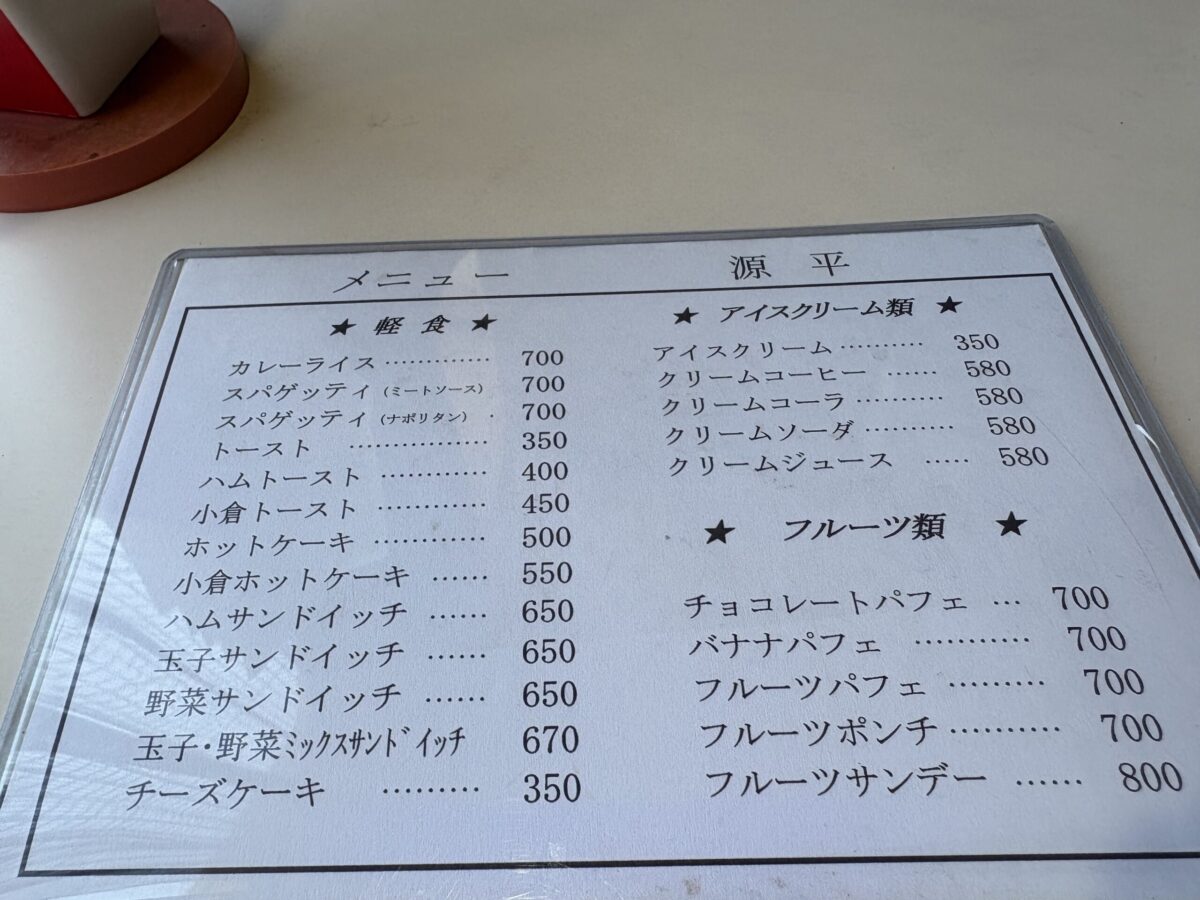 メニュー 源平
★ 軽食 ★
カレーライス ………… 700
スパゲッティ (ミートソース) 700
スパゲッティ (ナポリタン) ・ 700
トースト ……………… 350
ハムトースト ………… 400
小倉トースト ………… 450
ホットケーキ ………… 500
小倉ホットケーキ …… 550
ハムサンドイッチ …… 650
玉子サンドイッチ …… 650
野菜サンドイッチ …… 650
玉子・野菜ミックスサンドイッチ 670
チーズケーキ ……… 350
★ アイスクリーム類 ★
アイスクリーム ……… 350
クリームコーヒー …… 580
クリームコーラ ……… 580
クリームソーダ ……… 580
クリームジュース ….. 580
★ フルーツ類 ★
チョコレートパフェ … 700
バナナパフェ ………… 700
フルーツパフェ ……… 700
フルーツポンチ ……… 700
フルーツサンデー …… 800